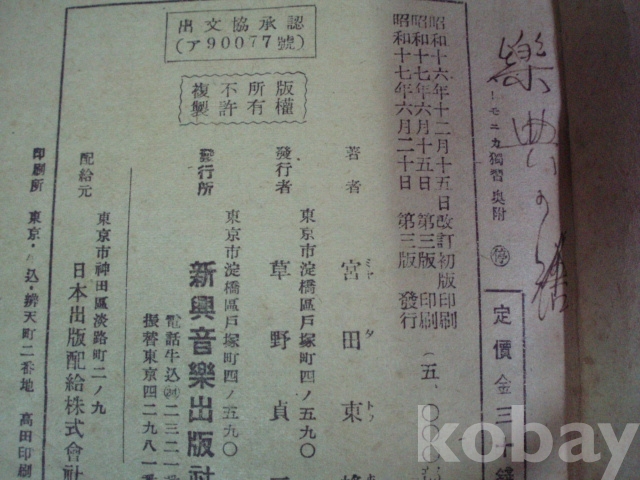 樂典の
ーモニカ獨習 奥附
停
定價金三十錢
昭和十六年十二月十五日改訂初版印刷
昭和十七年六月十五日 第三版 印刷
昭和十七年六月二十日 第三版 發行
(五、〇〇〇
著者 宮田東
ミヤ タ トウ
東京市淀橋區戸塚町四ノ五九〇
發行者 草野貞
東京市淀橋區戸塚町四ノ五九〇
發行所 新興音樂出版社
電話牛込(34)二三二一
振替東京四二九八一
出文協承認
(ア90077號)
版權
所有
不許
複製
東京市神田區淡路町二ノ九
配給元 日本出版配給株式會社
印刷所 東京・ 込・辨天町二番地 高田印刷
kobay